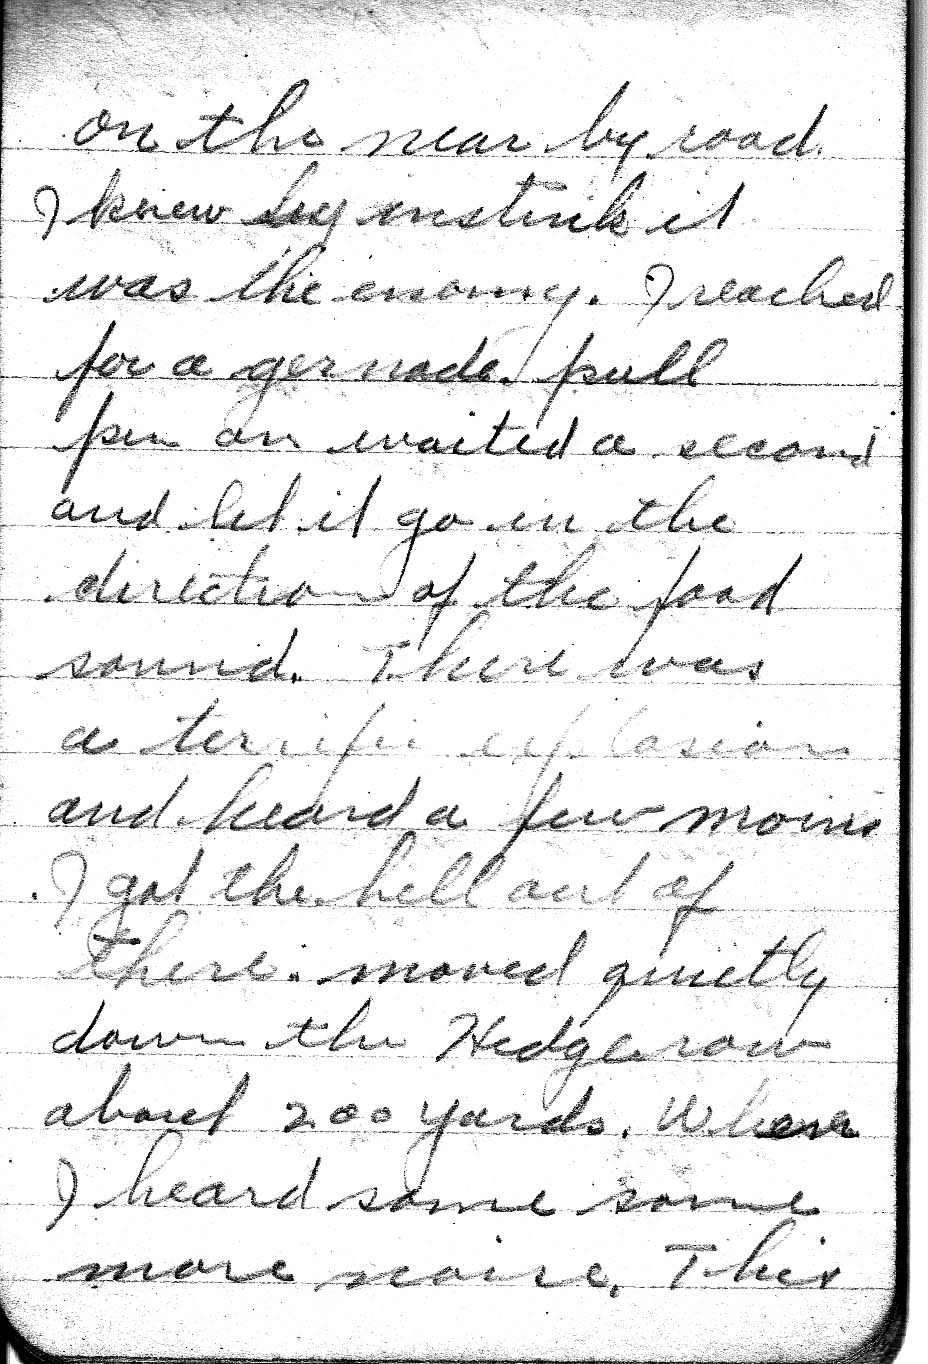 on the near by road.
I knew by instink it
was the enomy. I reached
for a gernade. pull
pin an waited a second
and let it go in the
direction of the food
sound. There was
a terrific explosion
and heard a few moins
I got the hell out of
there. moved quietly
down the Hedgerow
about 200 yards. Where
I heard some some
more noise. This